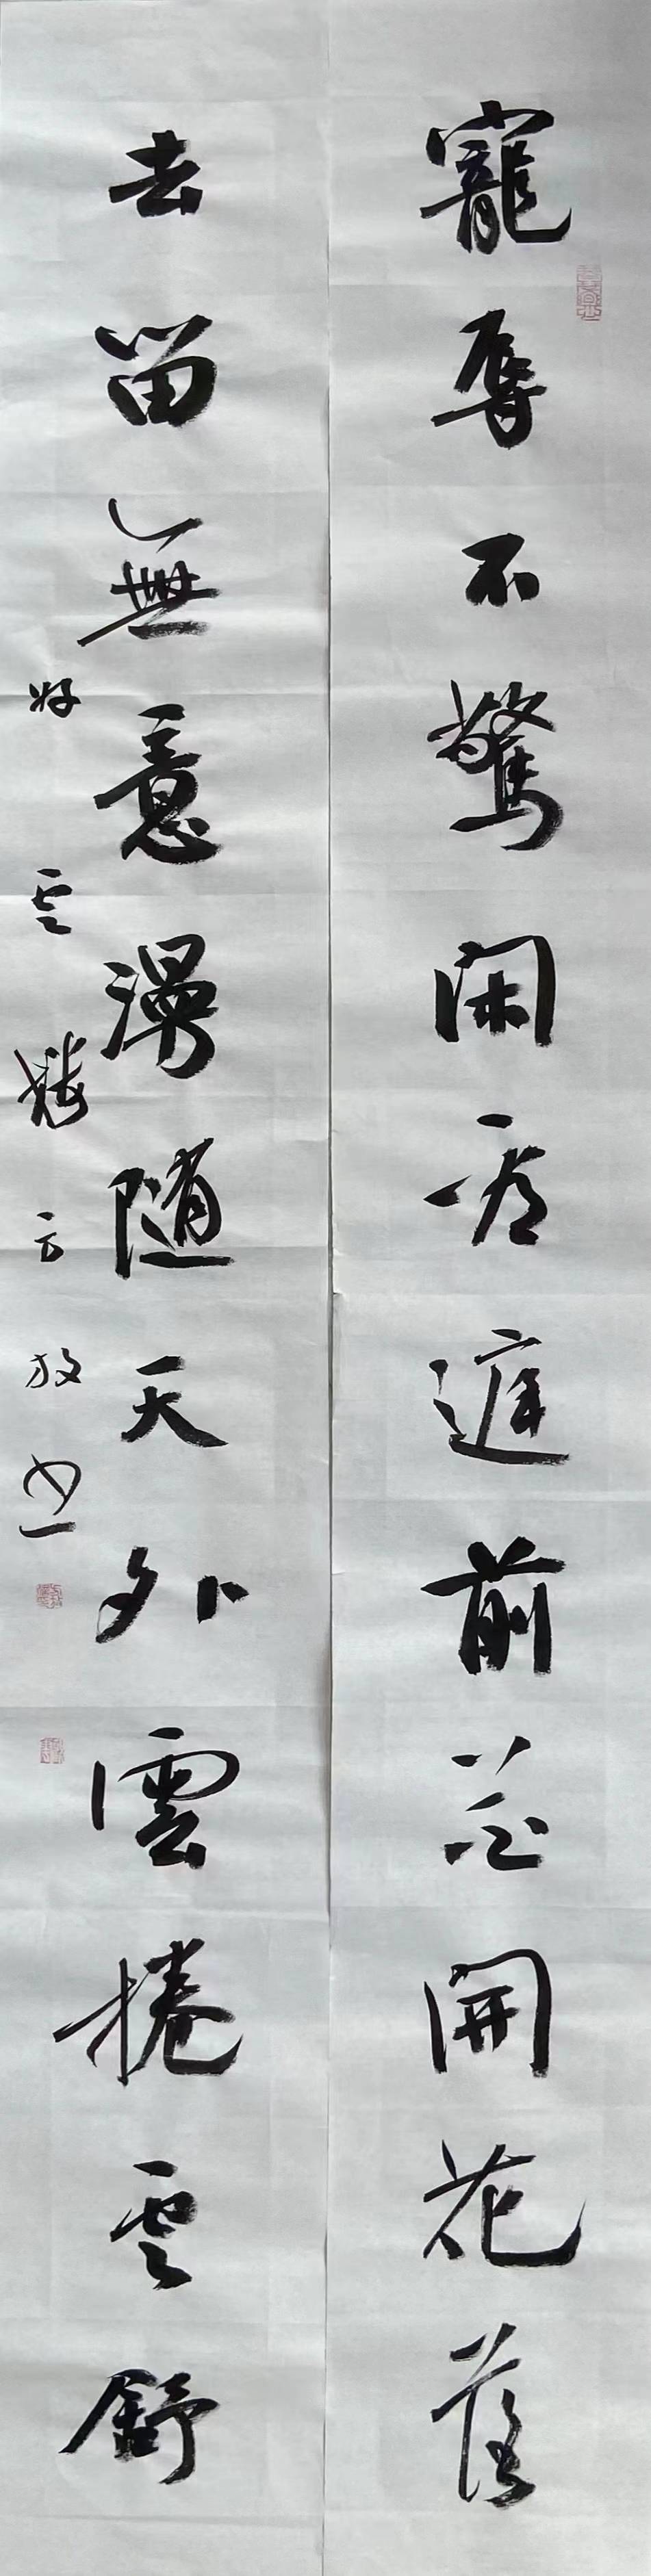 寵辱不驚閑看庭前花開花落
去留無意漫随天外雲捲雲舒
好雲楼主放書